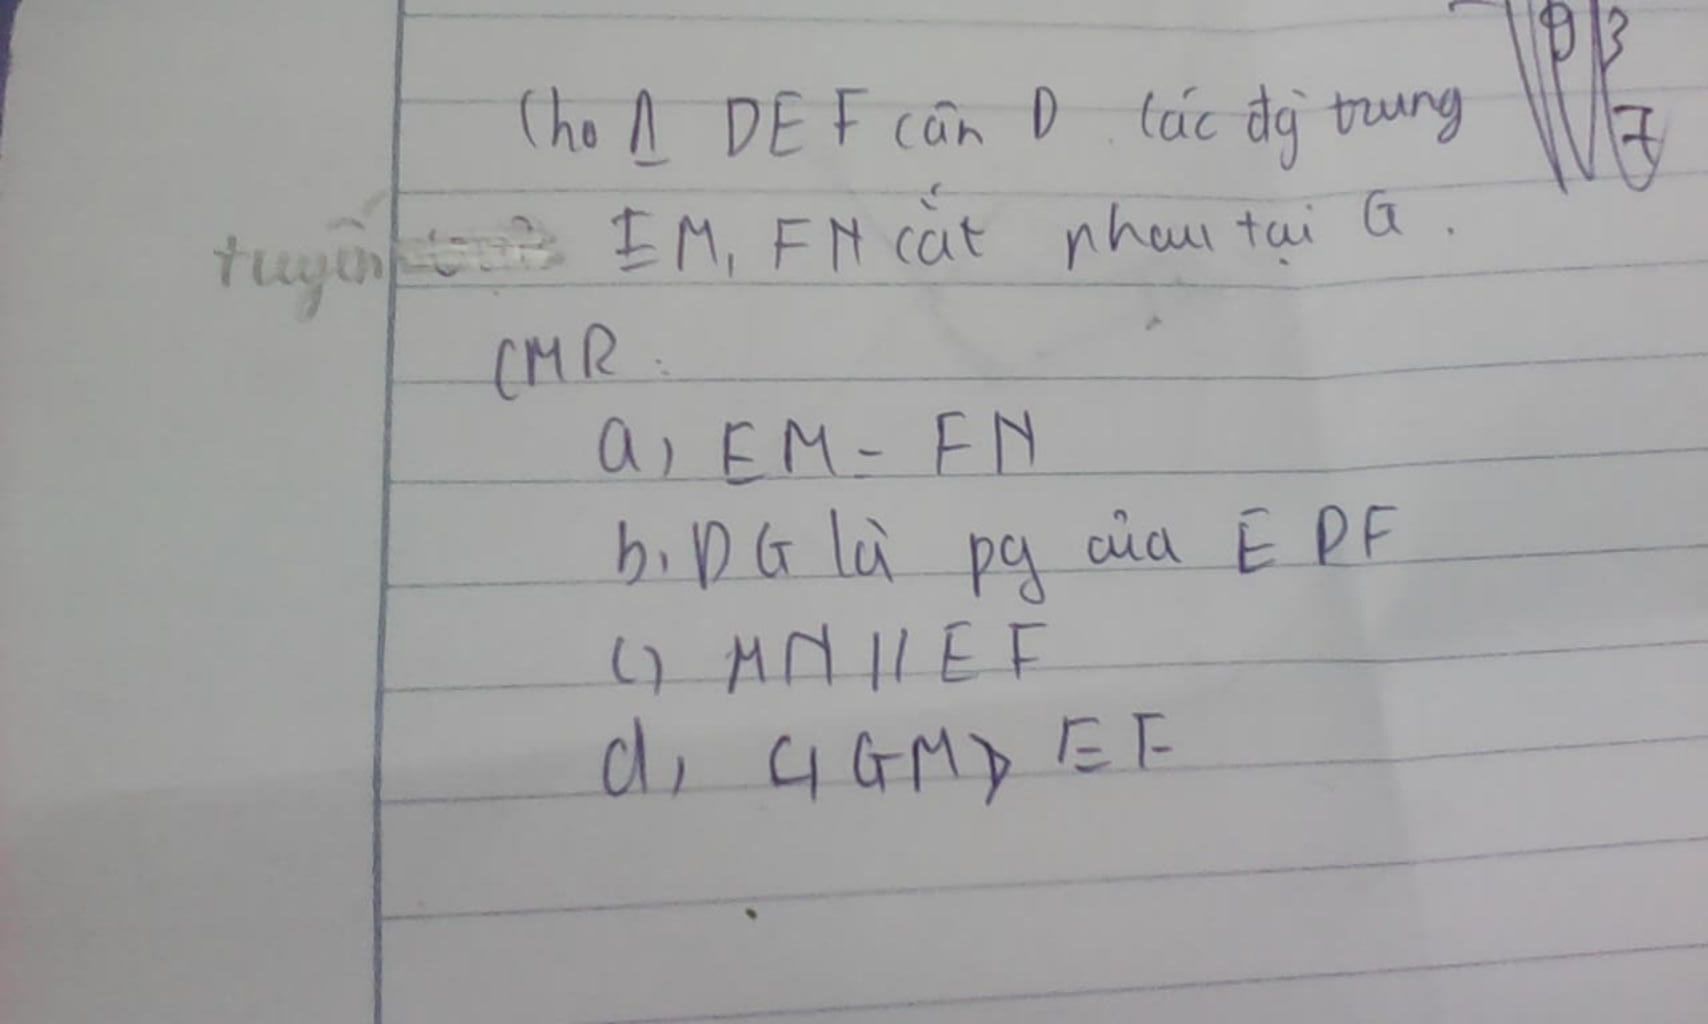 Cho Δ DEF cân D. Các đg trung
tuyến EM, FN cắt nhau tại G.
CMR:
a, EM = FN
b, DG là pg của EDF
c) MN // EF
d, 4GM > EF